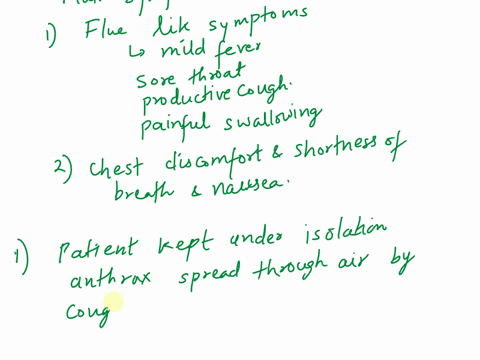 1) Flue like symptoms
↳ mild fever
sore throat
productive cough.
painful swallowing
2) Chest discomfort & shortness of
breath & nausea.
1) Patient kept under isolation
anthrax spread through air by
coug